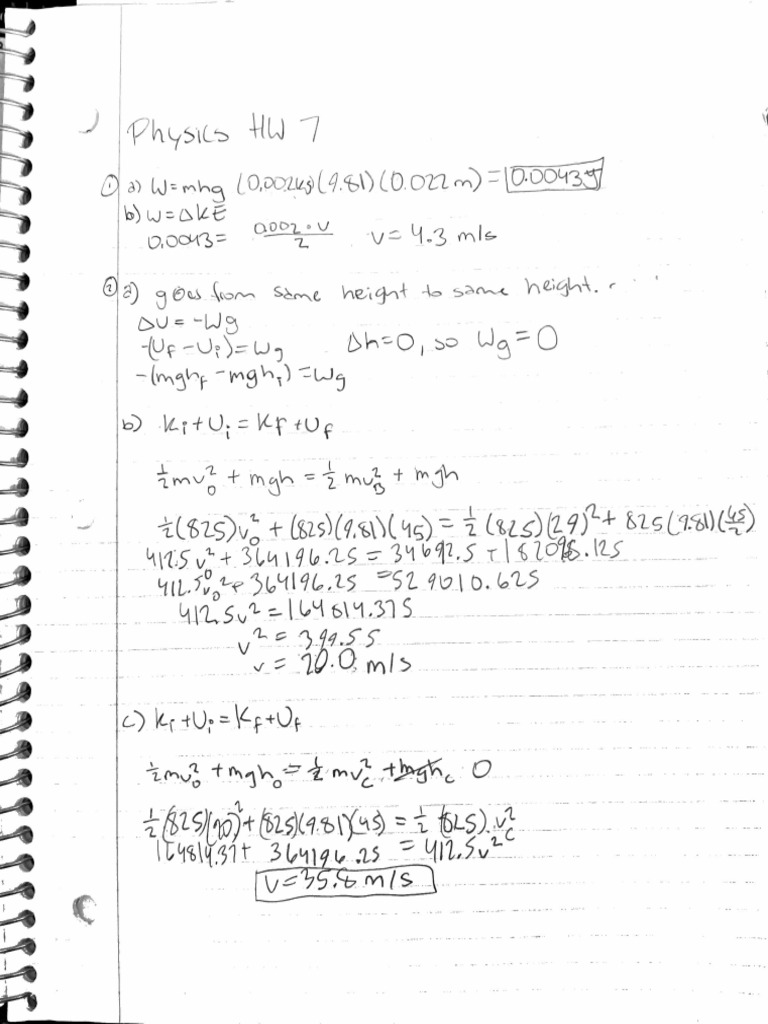 Physics HW 7
① a) W=mhg (0.002kg)(9.81)(0.022m)=0.0043J
b) W=ΔKE
0.0043= 0.002·v/2 v= 4.3 m/s
② a) goes from same height to same height.
ΔU = -Wg
-(Uf - Ui)=Wg Δh=0, so Wg=0
-(mghf - mghi)=Wg
b) Ki+Ui = Kf+Uf
½mv₀² + mgh = ½mv_B² + mgh
½(825)v₀² + (825)(9.81)(45) = ½(825)(29)²+825(9.81)(45/2)
412.5v₀² + 364196.25 = 34692.5 + 182098.125
412.5v₀² + 364196.25 = 529010.625
412.5v² = 164814.375
v² = 399.55
v = 20.0 m/s
c) Ki+Ui=Kf+Uf
½mv₀² + mgh₀ = ½mv_C² + mgh_C 0
½(825)(20)²+(825)(9.81)(45) = ½(825)v_C²
164814.37+ 364196.25 = 412.5v²c
v=35.8 m/s